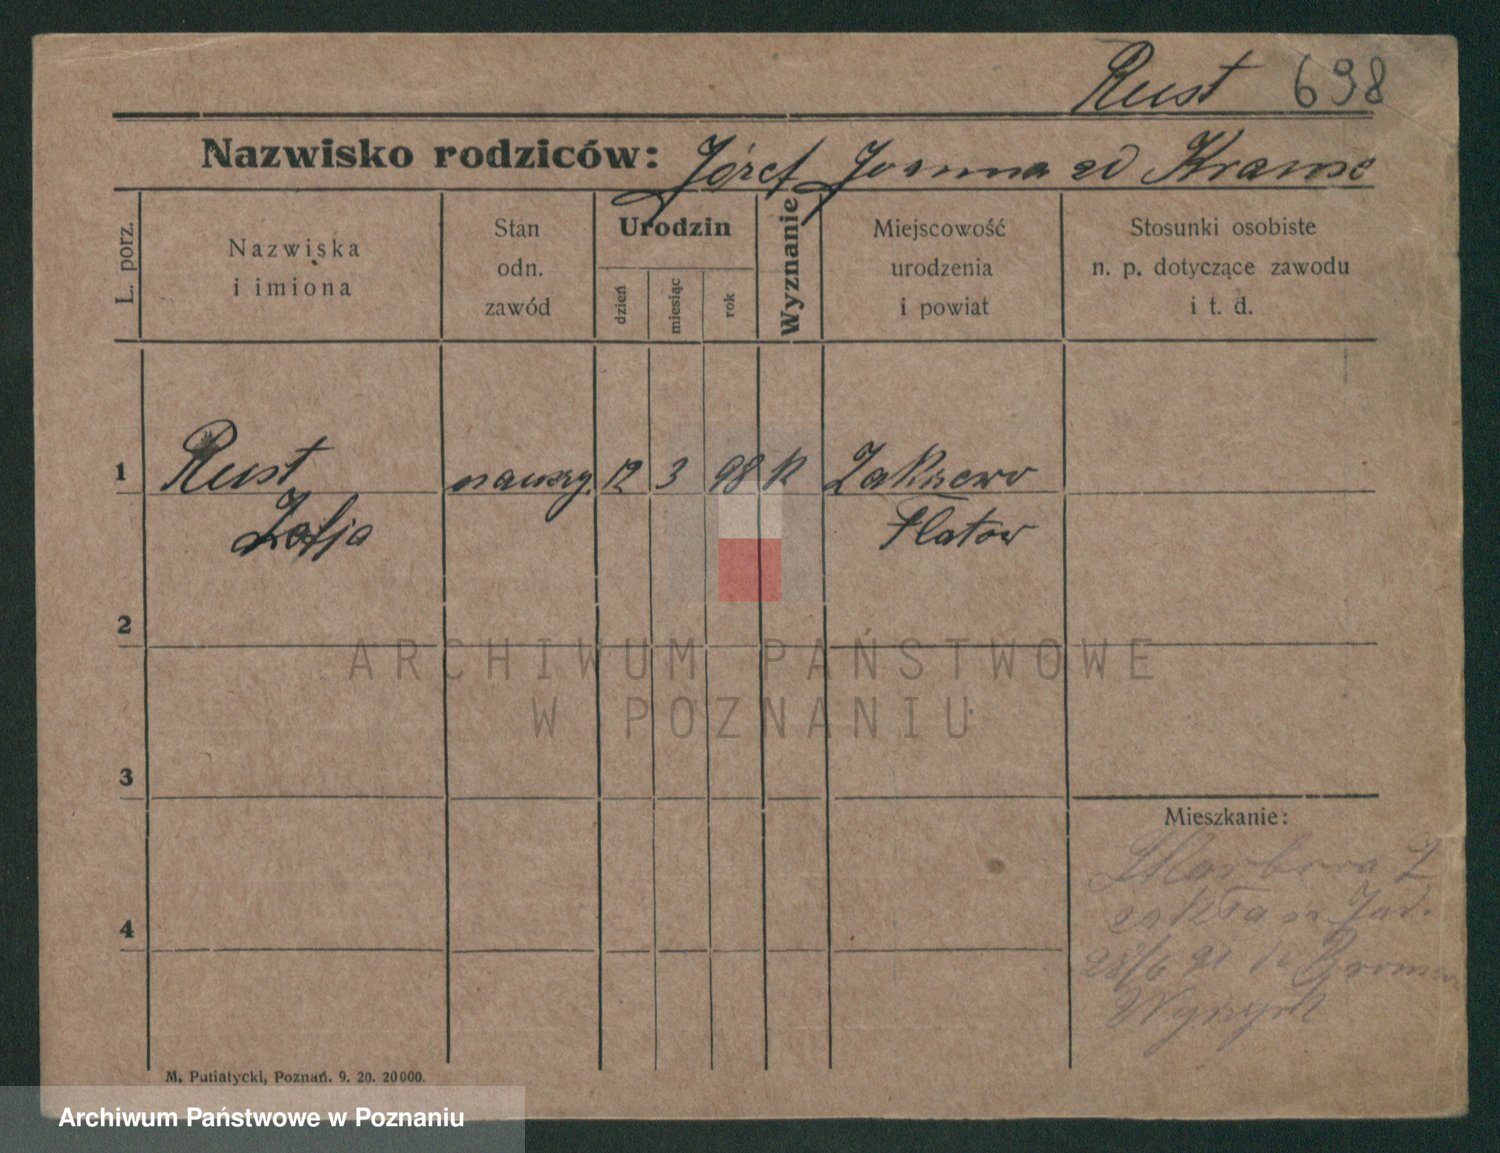 Rust 698
Nazwisko rodziców: Józef Joanna zd Krause
L. porz.
Nazwiska
i imiona
Stan
odn.
zawód
Urodzin
dzień
miesiąc
rok
Wyznanie
Miejscowość
urodzenia
i powiat
Stosunki osobiste
n. p. dotyczące zawodu
i t. d.
1 Rust nauczy. 12 3 98 k Zakrzewo
Zofja Flatow
2
ARCHIWUM PAŃSTWOWE
W POZNANIU
3
Mieszkanie:
4
28/6
M. Putiatycki, Poznań. 9. 20. 20000.
Archiwum Państwowe w Poznaniu